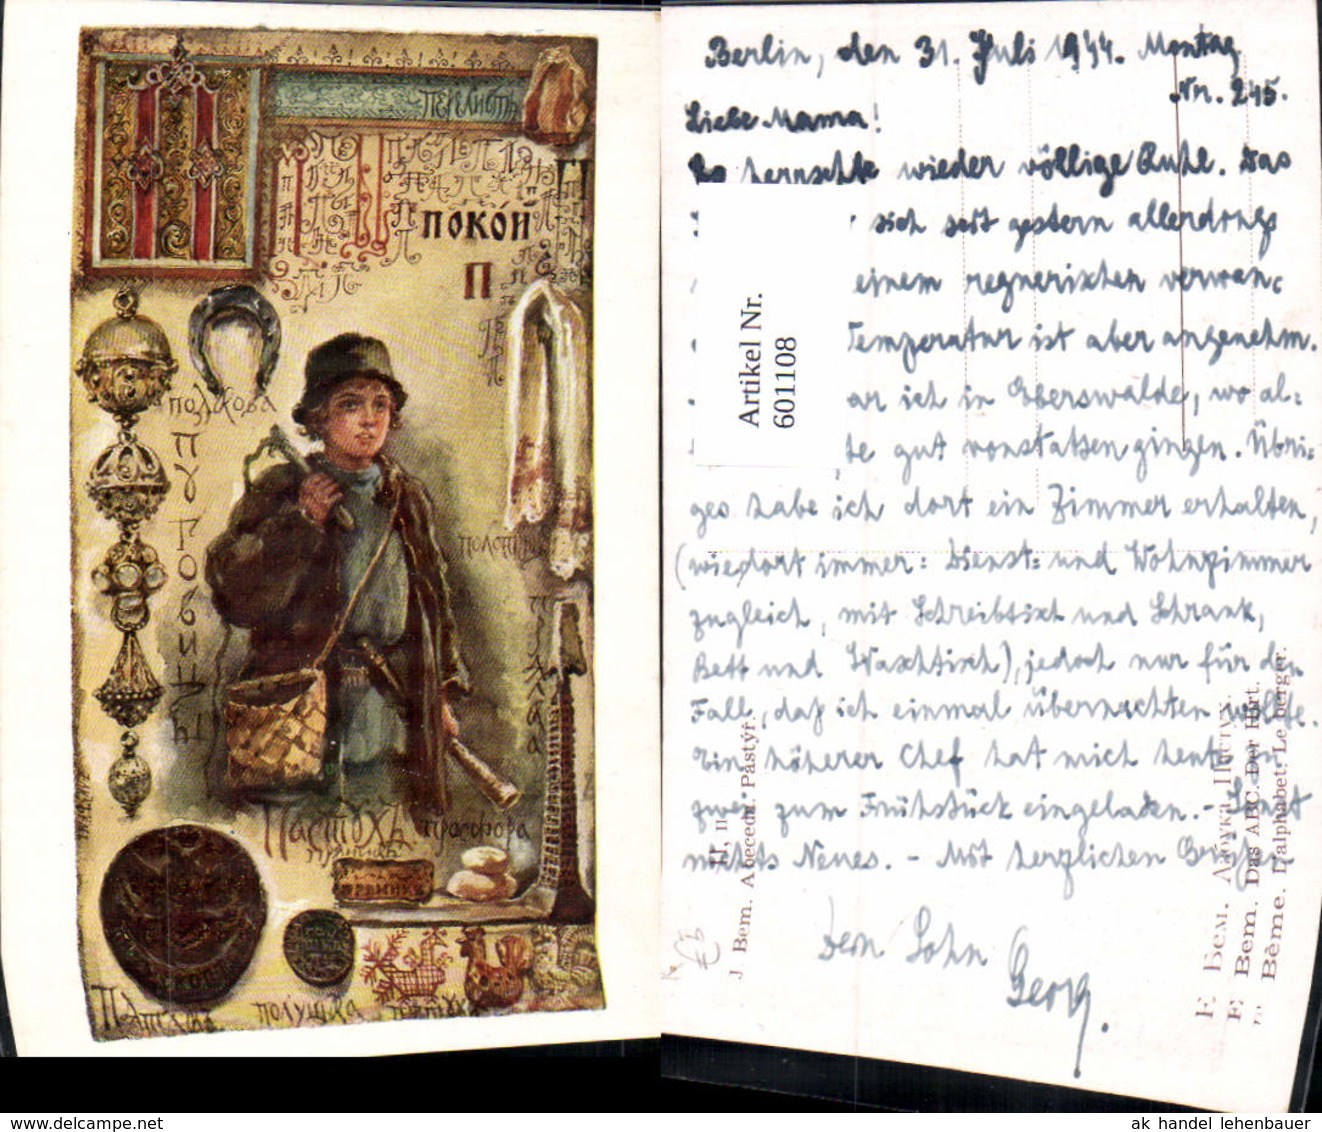 перелистъ
ПОКОЙ
П
подкова
ПУГОВИЦЫ
полотенце
Пастухъ просфора
пряникъ
Пятакъ полушка пѣтухъ
Berlin, den 31. Juli 1944. Montag
Nr. 245.
Liebe Mama!
Es herrschte wieder völlige Ruhe. Das
sich seit gestern allerdings
einem regnerischen verwan-
Temperatur ist aber angenehm.
ar ich in Eberswalde, wo al-
te gut vonstatten gingen. Übri-
ges habe ich dort ein Zimmer erhalten,
(wie dort immer: Dienst- und Wohnzimmer
zugleich, mit Schreibtisch und Schrank,
Bett und Waschtisch), jedoch nur für den
Fall, daß ich einmal übernachten wollte.
Ein höherer Chef hat mich heute zu
zwei zum Frühstück eingeladen. - Sonst
nichts Neues. - Mit herzlichen Grüßen
Dein Sohn
Georg.
Artikel Nr.
601108
II, II
J. Bem. Abeceda. Pastýř.
Е. Бем. Азбука. Пастух.
E. Bem. Das ABC. Der Hirt.
E. Bême. L'alphabet. Le berger.
ak handel lehenbauer